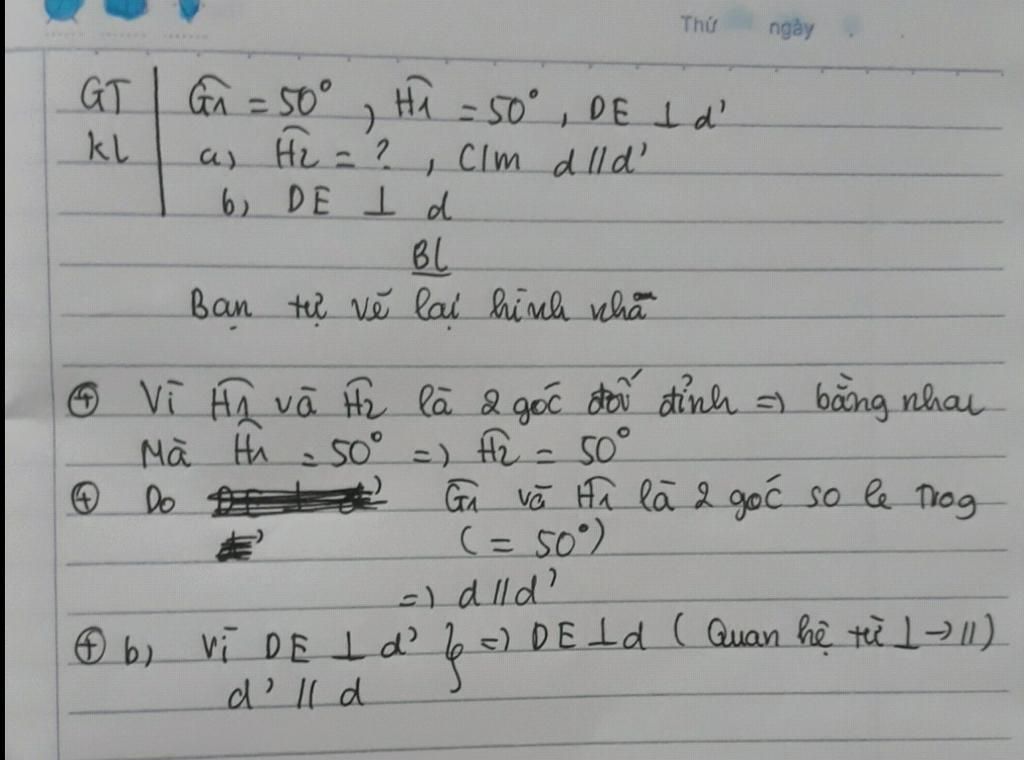 Thứ ngày
GT | Ĝ1 = 50°, Ĥ1 = 50°, DE ⊥ d'
KL | a) Ĥ2 = ?, C/m d // d'
b) DE ⊥ d
BL
Bạn tự vẽ lại hình nhá
⊕ Vì Ĥ1 và Ĥ2 là 2 góc đối đỉnh => bằng nhau
Mà Ĥ1 = 50° => Ĥ2 = 50°
⊕ Do Ĝ1 và Ĥ1 là 2 góc so le trog
(= 50°)
=> d // d'
⊕ b) Vì DE ⊥ d' } => DE ⊥ d (Quan hệ từ ⊥ → //)
d' // d